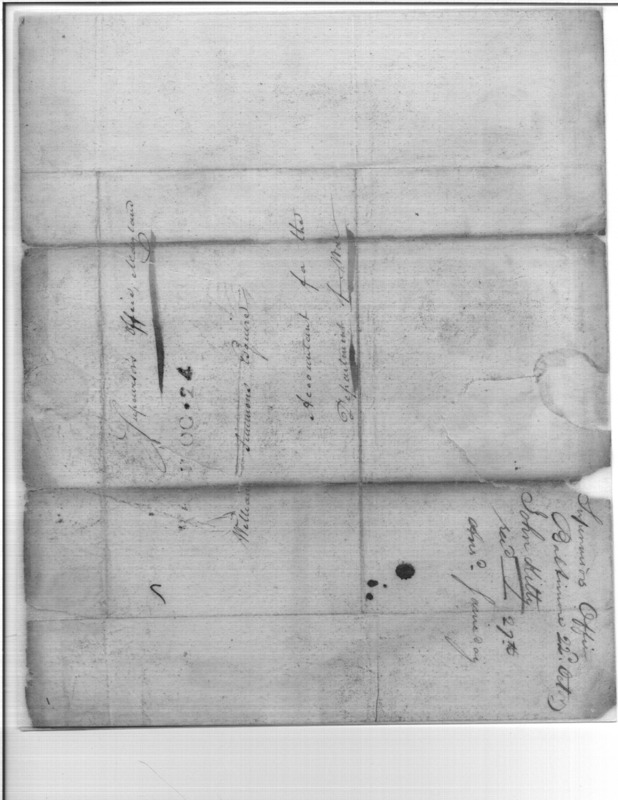 Supervisors Office, Maryland
OC • 24
William Simmons Esquire
Accountant for the
Department of War
Supervisors Office
Baltimore 22d. Oct.
John Kilty
recd 29th
Ansd. same day